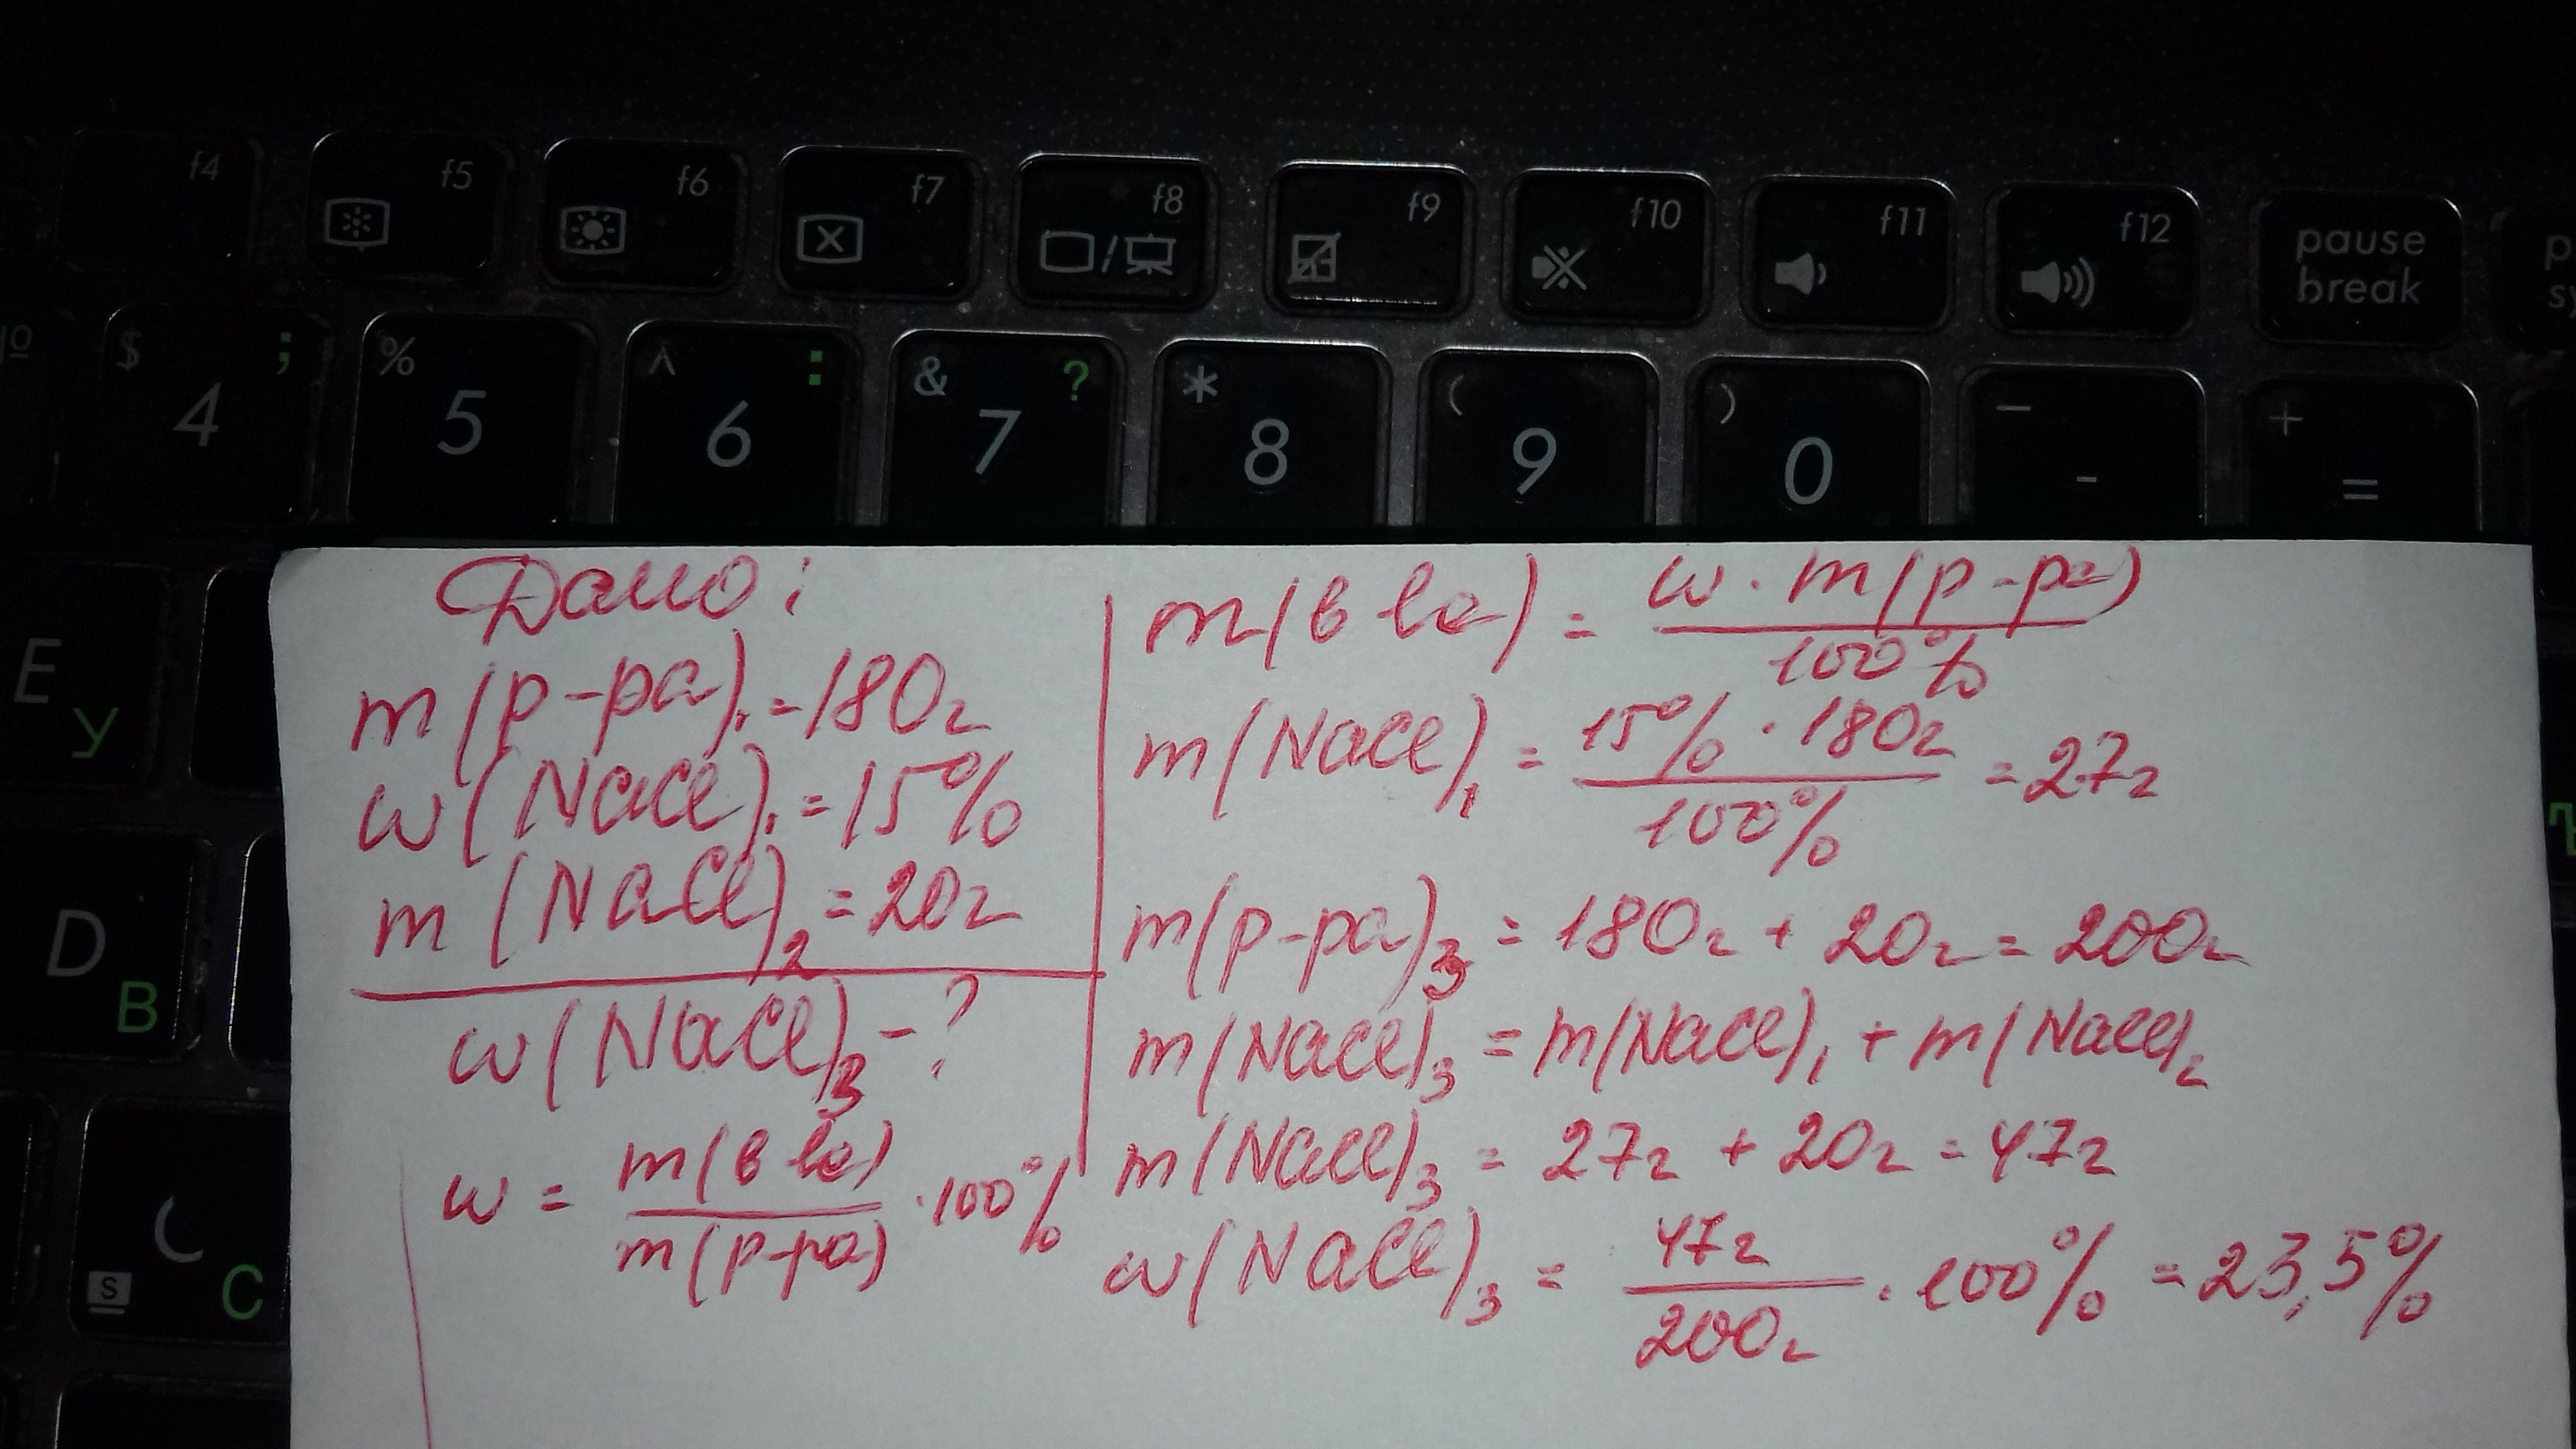 f4 f5 f6 f7 f8 f9 f10 f11 f12 pause break
$ ; 4 % 5 ^ : 6 & ? 7 * 8 ( 9 ) 0 _ - + =
E У
D В
C С
S
Дано:
m(р-ра)₁ = 180г
w(NaCl)₁ = 15%
m(NaCl)₂ = 20г
w(NaCl)₃ - ?
w = m(в-ва) / m(р-ра) · 100%
m(в-ва) = w · m(р-ра) / 100%
m(NaCl)₁ = 15% · 180г / 100% = 27г
m(р-ра)₃ = 180г + 20г = 200г
m(NaCl)₃ = m(NaCl)₁ + m(NaCl)₂
m(NaCl)₃ = 27г + 20г = 47г
w(NaCl)₃ = 47г / 200г · 100% = 23,5%